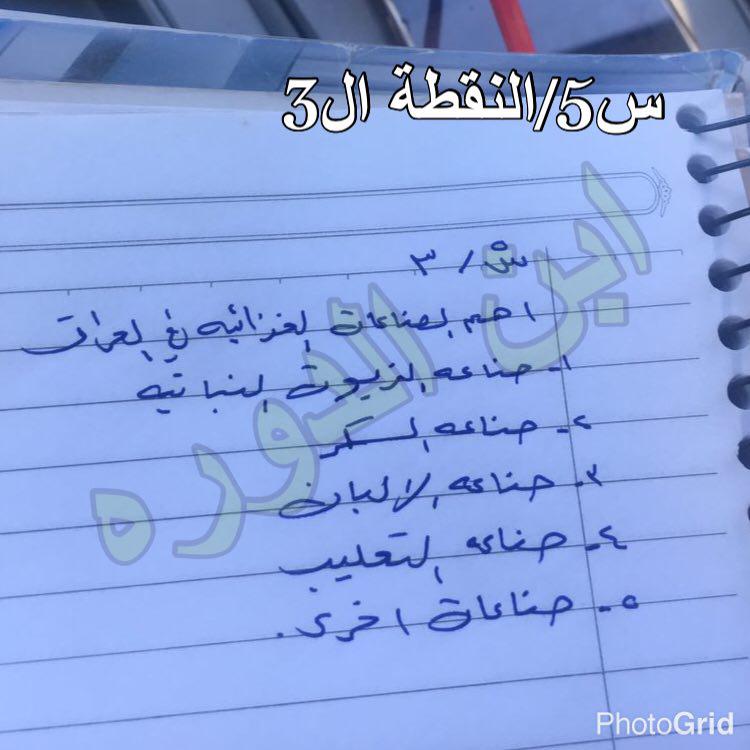 س5/النقطة ال3
س / ٣
اهم الصناعات الغذائيه في العراق
١- صناعه الزيوت النباتيه
٢- صناعه السكر
٣- صناعه الالبان
٤- صناعه التعليب
٥- صناعات اخرى.
ابن الدوره
PhotoGrid